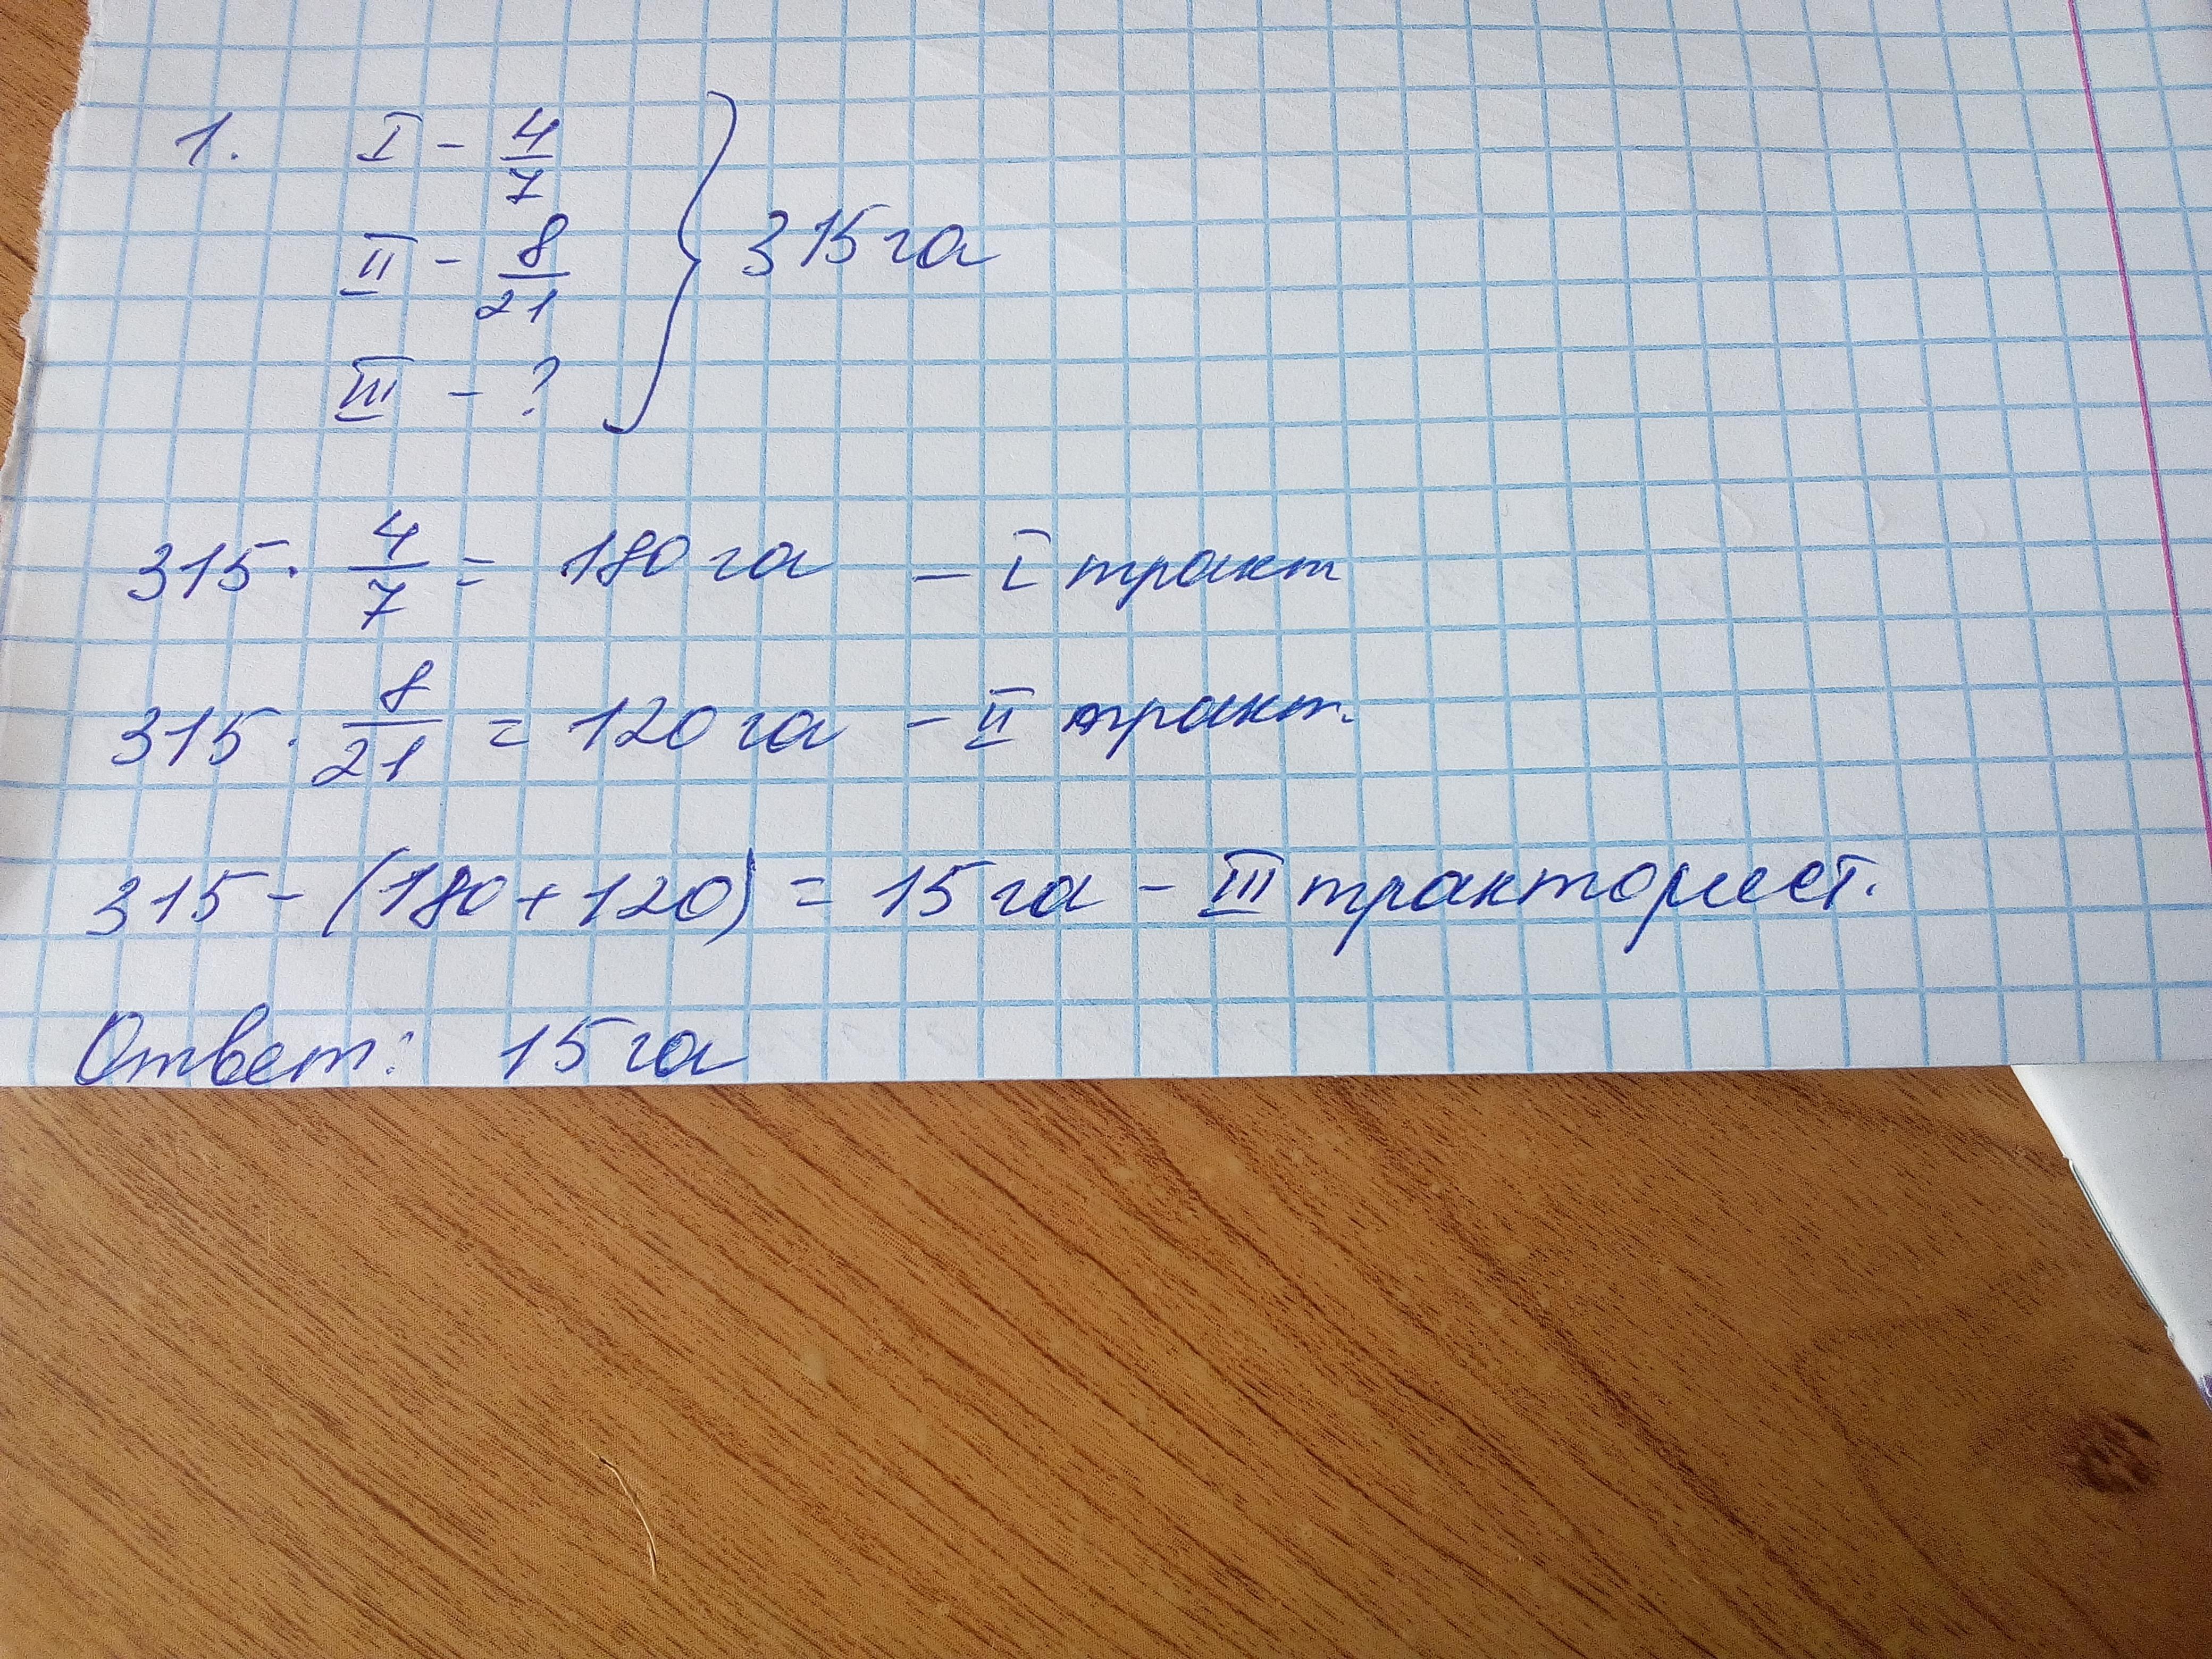 1. I - 4/7
II - 8/21
III - ?
315 га
315 · 4/7 = 180 га - I тракт
315 · 8/21 = 120 га - II тракт.
315 - (180 + 120) = 15 га - III тракторист.
Ответ: 15 га